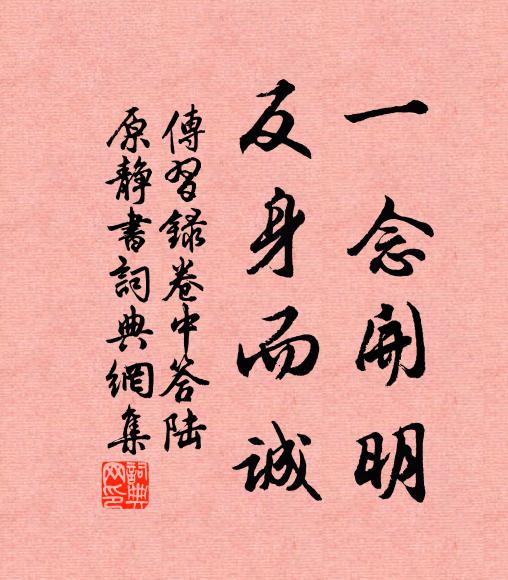 一念開明
反身而誠
傳習録卷中答陆
原静書詞典網集
詞典
网印